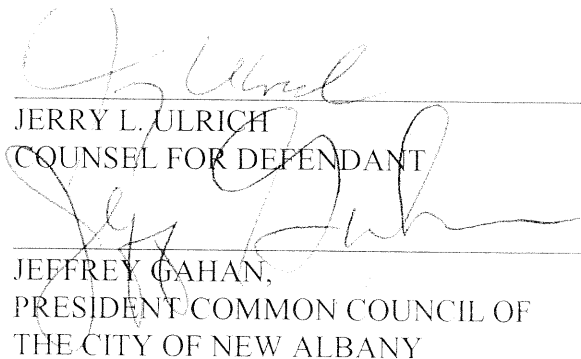 Jerry Ulrich
JERRY L. ULRICH
COUNSEL FOR DEFENDANT
Jeff Gahan
JEFFREY GAHAN,
PRESIDENT COMMON COUNCIL OF
THE CITY OF NEW ALBANY